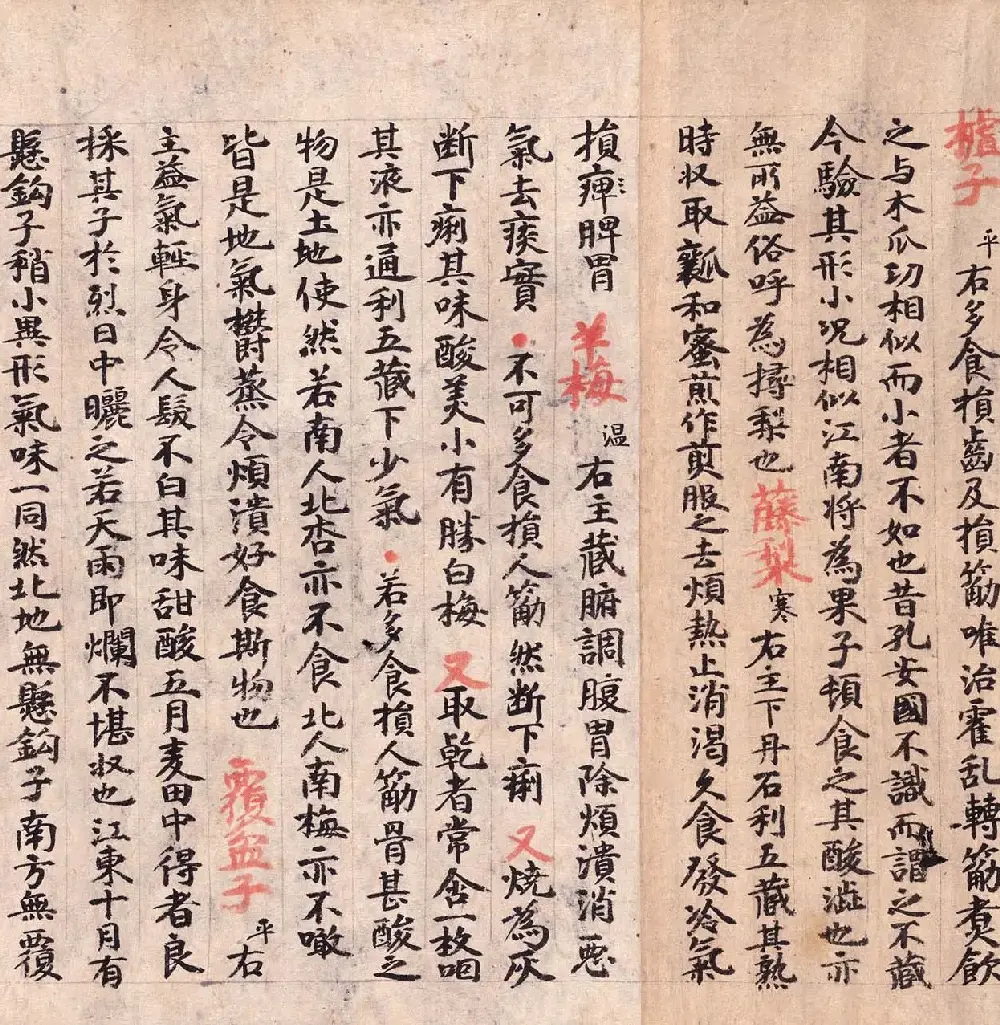 樝子平右多食損齒及損筋唯治霍乱轉筋煑飲
之与木瓜功相似而小者不如也昔孔安國不識而謂之不藏
今驗其形小況相似江南將為果子頓食之其酸澁也亦
無所益俗呼為㯶梨也藤梨寒右主下丹石利五藏其熟
時收取瓤和蜜煎作煎服之去煩熱止消渴久食發冷氣
損痺脾胃羊梅温右主藏腑調腹胃除煩潰消惡
氣去痰實不可多食損人筋然断下痢又燒為灰
断下痢其味酸美小有勝白梅又取乾者常含一枚咽
其液亦通利五藏下少氣若多食損人筋骨甚酸之
物是土地使然若南人北杏亦不食北人南梅亦不噉
皆是地氣欝蒸令煩潰好食斯物也覆盆子平右
主益氣輕身令人髮不白其味甜酸五月麦田中得者良
採其子於烈日中曬之若天雨即爛不堪收也江東十月有
懸鈎子稍小異形氣味一同然北地無懸鈎子南方無覆